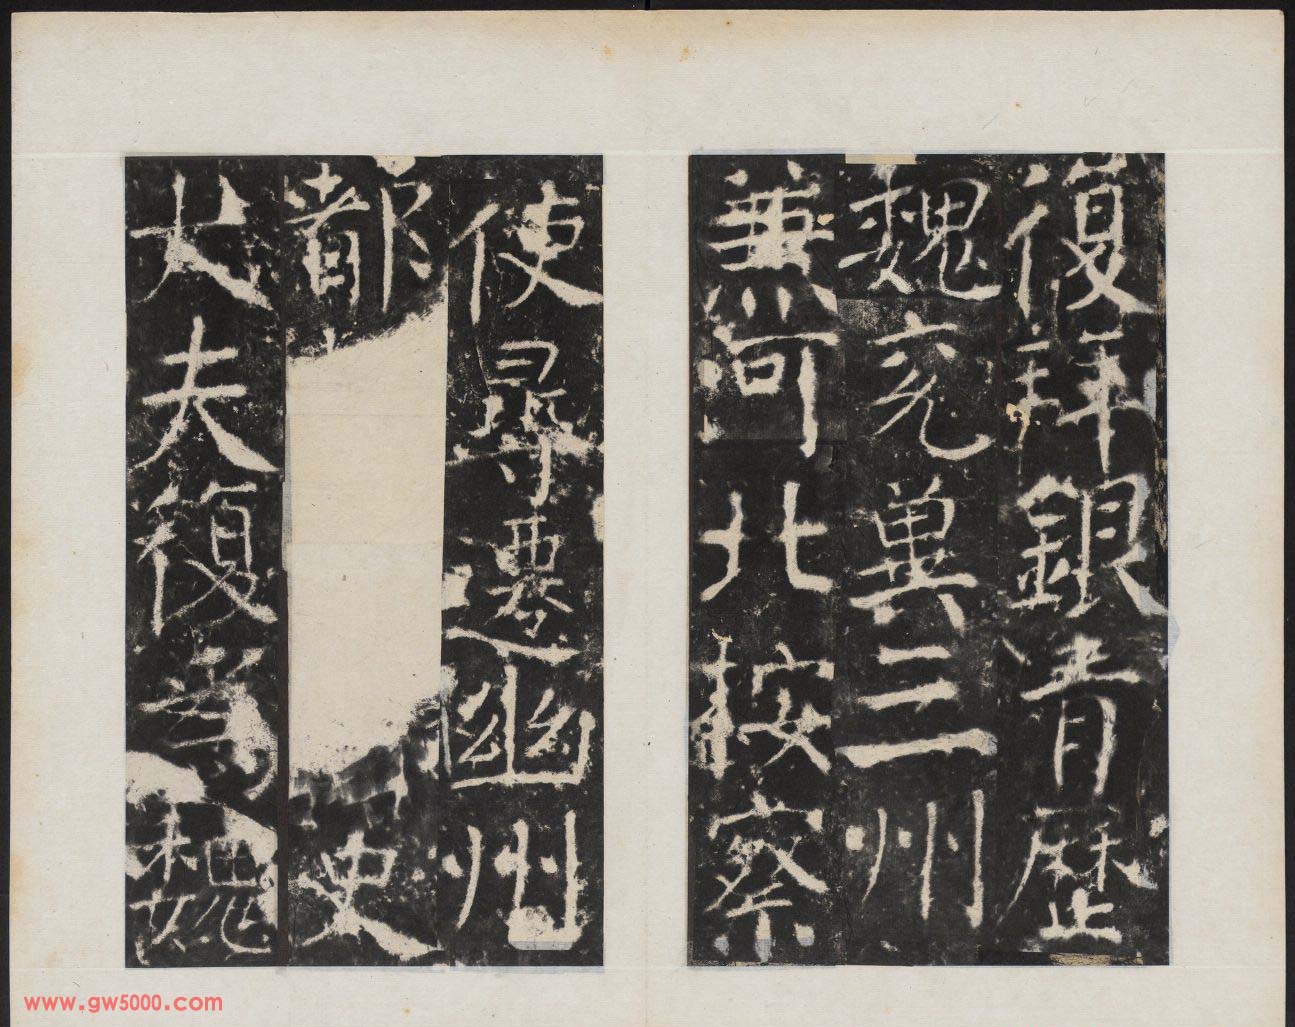 復拜銀青歷
魏兖冀三州
兼河北按察
使尋遷幽州
都
史
大夫復為魏
www.gw5000.com